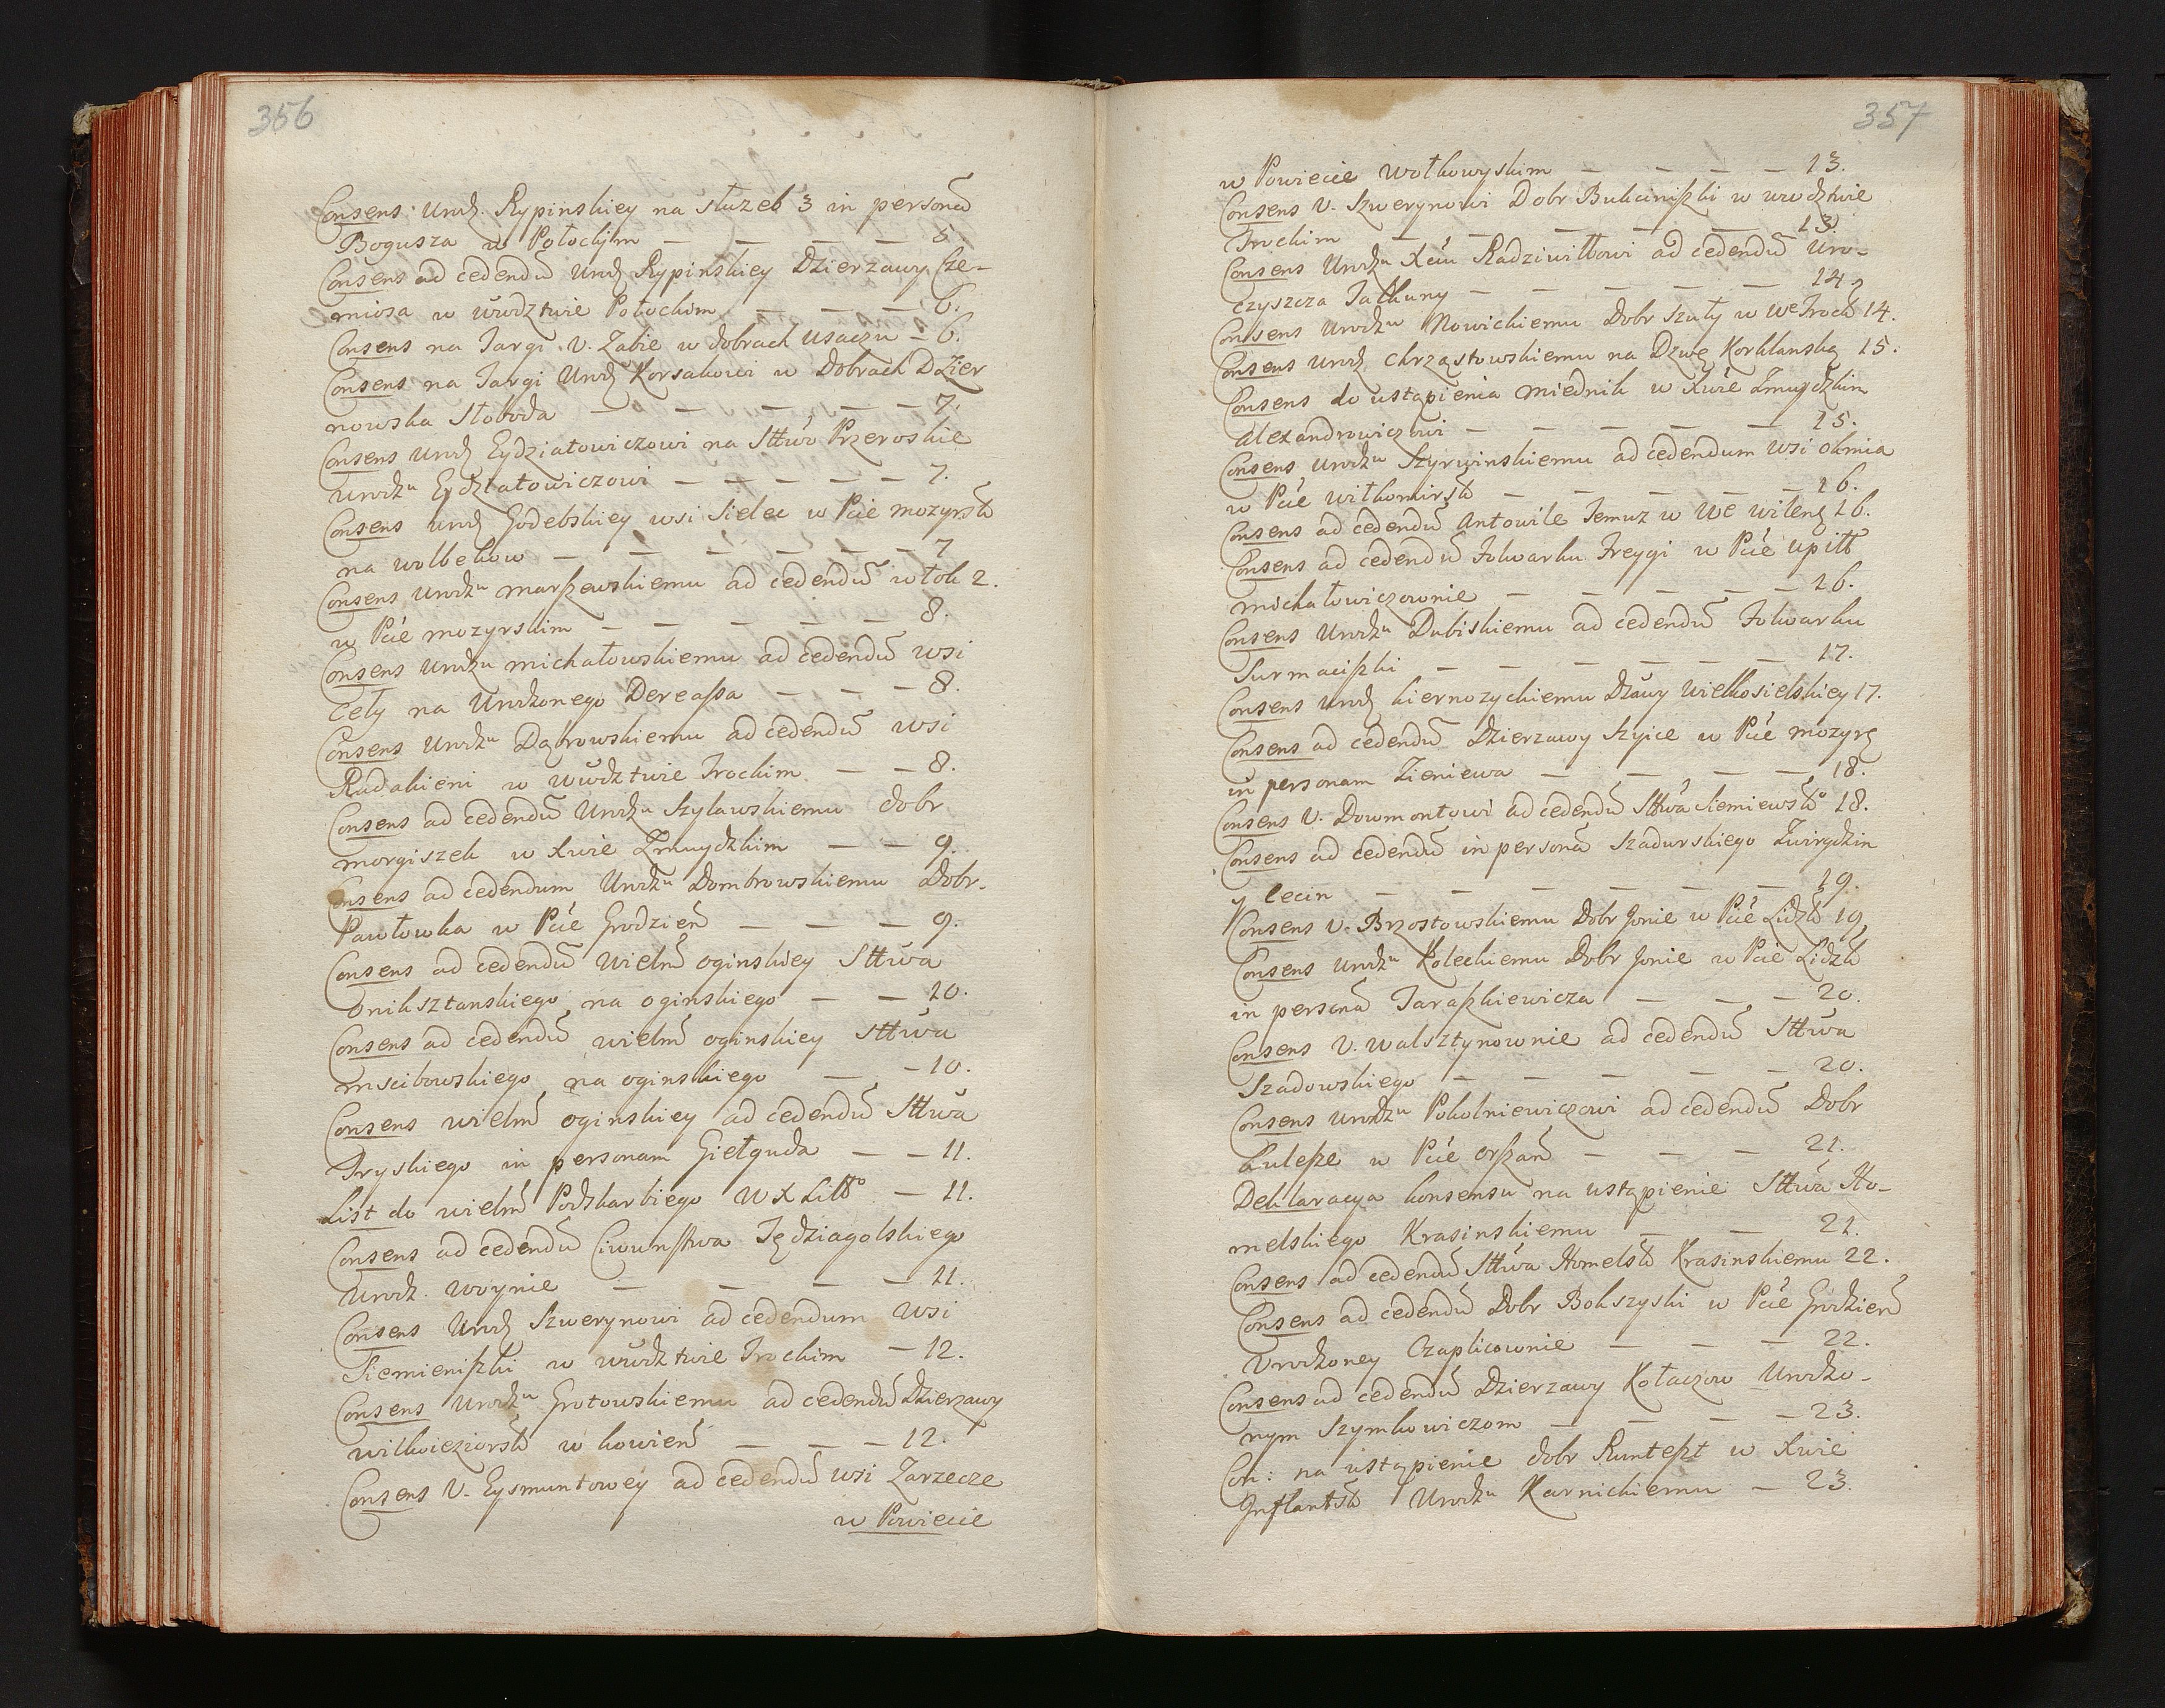 356
Consens Urodz. Rypinskiey na słuzeb 3 in personã
Bogusza w Połockim — — — — 5.
Consens ad cedendũ Urodz Rypinskiey Dzierzawy Cze-
miosa w wwdztwie Połockim — — — 6.
Consens na Targi U. Zabie w dobrach Usaczu — 6.
Consens na Targi Urodz Korsakowi w Dobrach Dzier
nowska Słoboda — — — — — 7.
Consens Urodz Eydziatowiczowi na Sttwo Przeroskie
Urodzu Eydziatowiczowi — — — — — 7.
Consens Urodz Godebskiey wsi Sielec w Pcie mozyrsk
na wolbekow — — — — — — 7
Consens Urodzu marszewskiemu ad cedendũ włok 2.
w Pcie mozyrskim — — — — — 8.
Consens Urodzu michałowskiemu ad cedendũ wsi
Cely na Urodzonego Dereassa — — — 8.
Consens Urodzu Dąbrowskiemu ad cedendũ wsi
Radakieni w wwdztwie Trockim — — 8.
Consens ad cedendũ Urodzu Szylawskiemu dobr
morgiszek w Xwie Zmuydzkim — — 9.
Consens ad cedendum Urodzu Dombrowskiemu Dobr
Pawłowka w Pcie Grodzień — — — 9.
Consens ad cedendũ Wielm Oginskiey Sttwa
Oniksztanskiego na Oginskiego — — 10.
Consens ad cedendũ wielm Oginskiey Sttwa
mscibowskiego na Oginskiego — — 10.
Consens wielm Oginskiey ad cedendũ Sttwa
Dryskiego in personam Giełguda — — 11.
List do wielm Podskarbiego WXLitt° — 11.
Consens ad cedendũ Ciwunstwa Tędziagolskiego
Urodz. Woynie — — — — 11.
Consens Urodz Szwerynowi ad cedendum wsi
Siemieniszki w wwdztwie Trockim — 12.
Consens Urodzu Grotowskiemu ad cedendũ Dzierzawy
wilkoieziorsk w kowień — — — 12.
Consens U. Eysmuntowey ad cedendũ wsi Zarzecze
w Powiecie
357
w Powiecie Wołkowyskim — — — — 13.
Consens U. Szwerynowi Dobr Bukciniszki w wwodztwie
Trockim — — — — — 13.
Consens Urodzu Xciu Radziwiłłowi ad cedendũ Uro-
czyszcza Jatkuny — — — — — 14.
Consens Urodzu Nowickiemu Dobr Szuty w We Trock 14.
Consens Urodz Chrząstowskiemu na Dzwę Korklanską 15.
Consens do ustąpienia miednik w Xwie Zmuydzkim
Alexandrowiczowi — — — — — 15.
Consens Urodzu Szyrwinskiemu ad cedendum wsi Okmia
w Pcie wiłkomirsk — — — — — 16.
Consens ad cedendũ Antowile Temuz w We wileng 16.
Consens ad cedendũ Folwarku Freygi w Pcie Upitt
michałowiczownie — — — — — 16.
Consens Urodzu Dubiskiemu ad cedendũ Folwarku
Surmaciszki — — — — — — 17.
Consens Urodz kiernozyckiemu Dzawy Wielkosielskiey 17.
Consens ad cedendũ Dzierzawy Szyice w Pcie mozyrs
in personam Zieniewa — — — — 18.
Consens U. Dowmontowi ad cedendũ Sttwa Siemiewsk° 18.
Consens ad cedendũ in personã Szadurskiego Zwirydzin
y Lecin — — — — — — 19.
Konsens U. Brzostowskiemu Dobr Jonie w Pcie Lidzk 19.
Consens Urodzu Koleckiemu Dobr Jonie w Pcie Lidzk
in personã Taraszkiewicza — — — 20.
Consens U. walsztynownie ad cedendũ Sttwa
Szadowskiego — — — — — 20.
Consens Urodzu Pokolniewiczowi ad cedendũ Dobr
kulesze w Pcie Orszań — — — 21.
Deklaracya konsensu na ustąpienie Sttwa Ho-
melskiego Krasinskiemu — — 21.
Consens ad cedendũ Sttwa Homelsk Krasinskiemu 22.
Consens ad cedendũ Dobr Bokszyski w Pcie Grodzień
Urodzoney Czaplicownie — — — 22.
Consens ad cedendũ Dzierzawy Kołaczow Urodzo-
nym Szymkowiczom — — — — 23.
Con: na ustąpienie dobr Runteszt w Xwie
Inflantsk Urodzu Karnickiemu — 23.